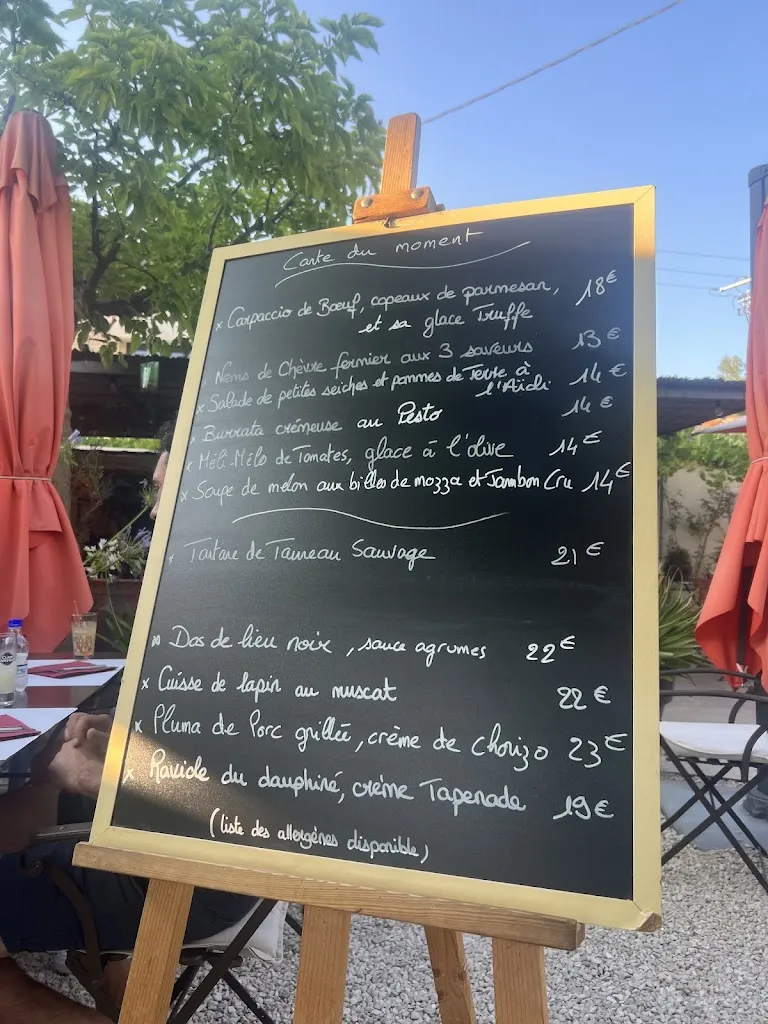 Carte du moment
x Carpaccio de Bœuf, copeaux de parmesan, 18€
et sa glace Truffe
x Nems de Chèvre fermier aux 3 saveurs 13€
x Salade de petites seiches et pommes de terre à 14€
l'Aïoli
x Burrata crémeuse au Pesto 14€
x Méli-Mélo de Tomates, glace à l'olive 14€
x Soupe de melon aux billes de mozza et Jambon Cru 14€
x Tartare de Taureau Sauvage 21€
x Dos de lieu noir, sauce agrumes 22€
x Cuisse de lapin au muscat 22€
x Pluma de Porc grillée, crème de chorizo 23€
x Raviole du dauphiné, crème Tapenade 19€
(liste des allergènes disponible)